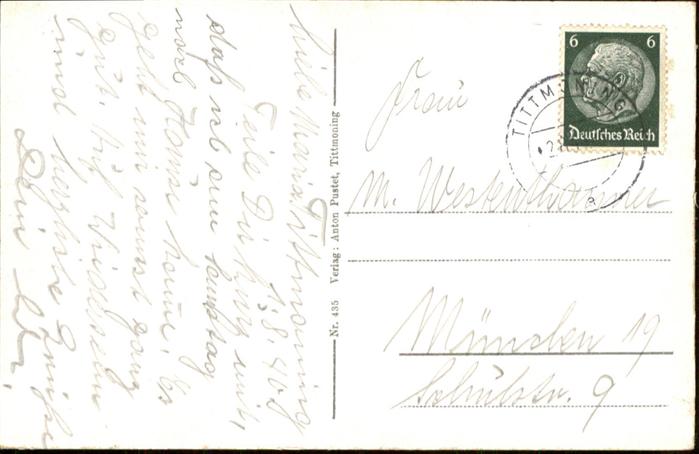 Tittmoning
1.8.40
Liebe Maria!
Teile Dir kurz mit,
daß ich am
nach Hause komme. Es
geht mir sonst ganz
gut. Auf Wiedersehn
und herzliche Grüße
Dein
Nr. 435 Verlag: Anton Pustet, Tittmoning
6 6
Deutsches Reich
TITTMONING
a
Frau
M. Westenthanner
München 19
Schulstr. 9